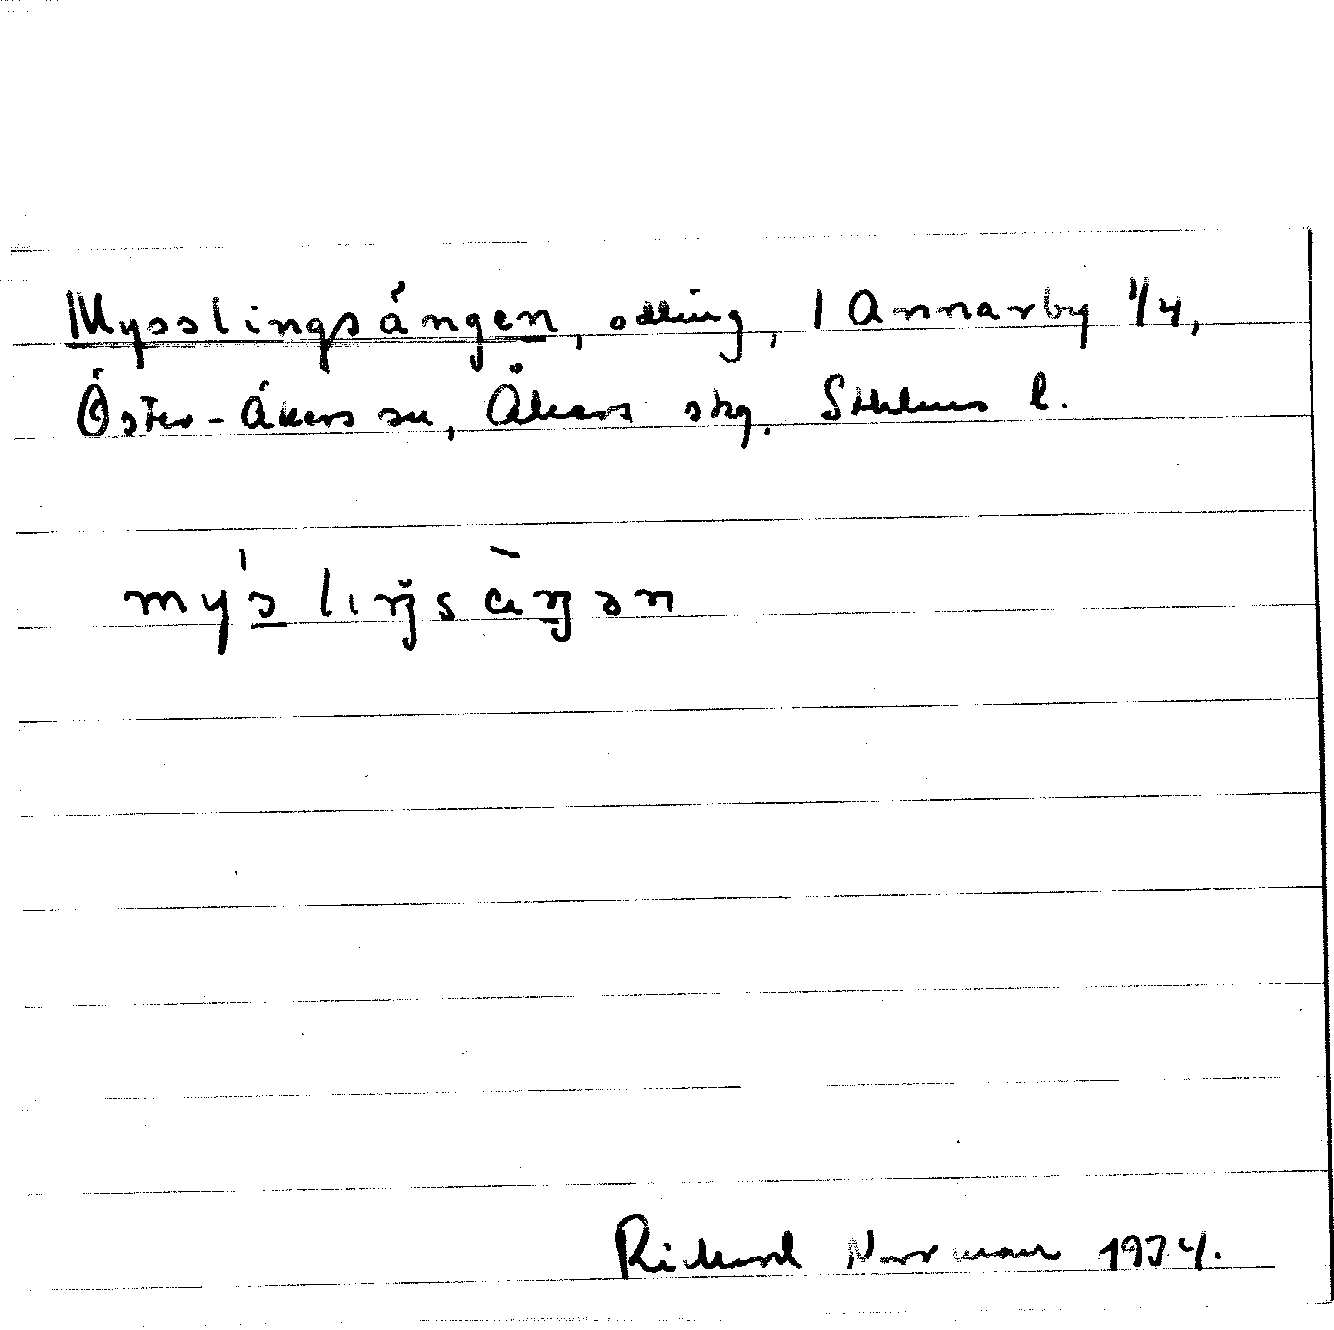 Mysslingsängen, odling, 1 Annarby 1/4,
Öster-Åkers sn, Åkers skg. Sthlms l.
my's liŋs àŋən
Rickard Norman 1934.